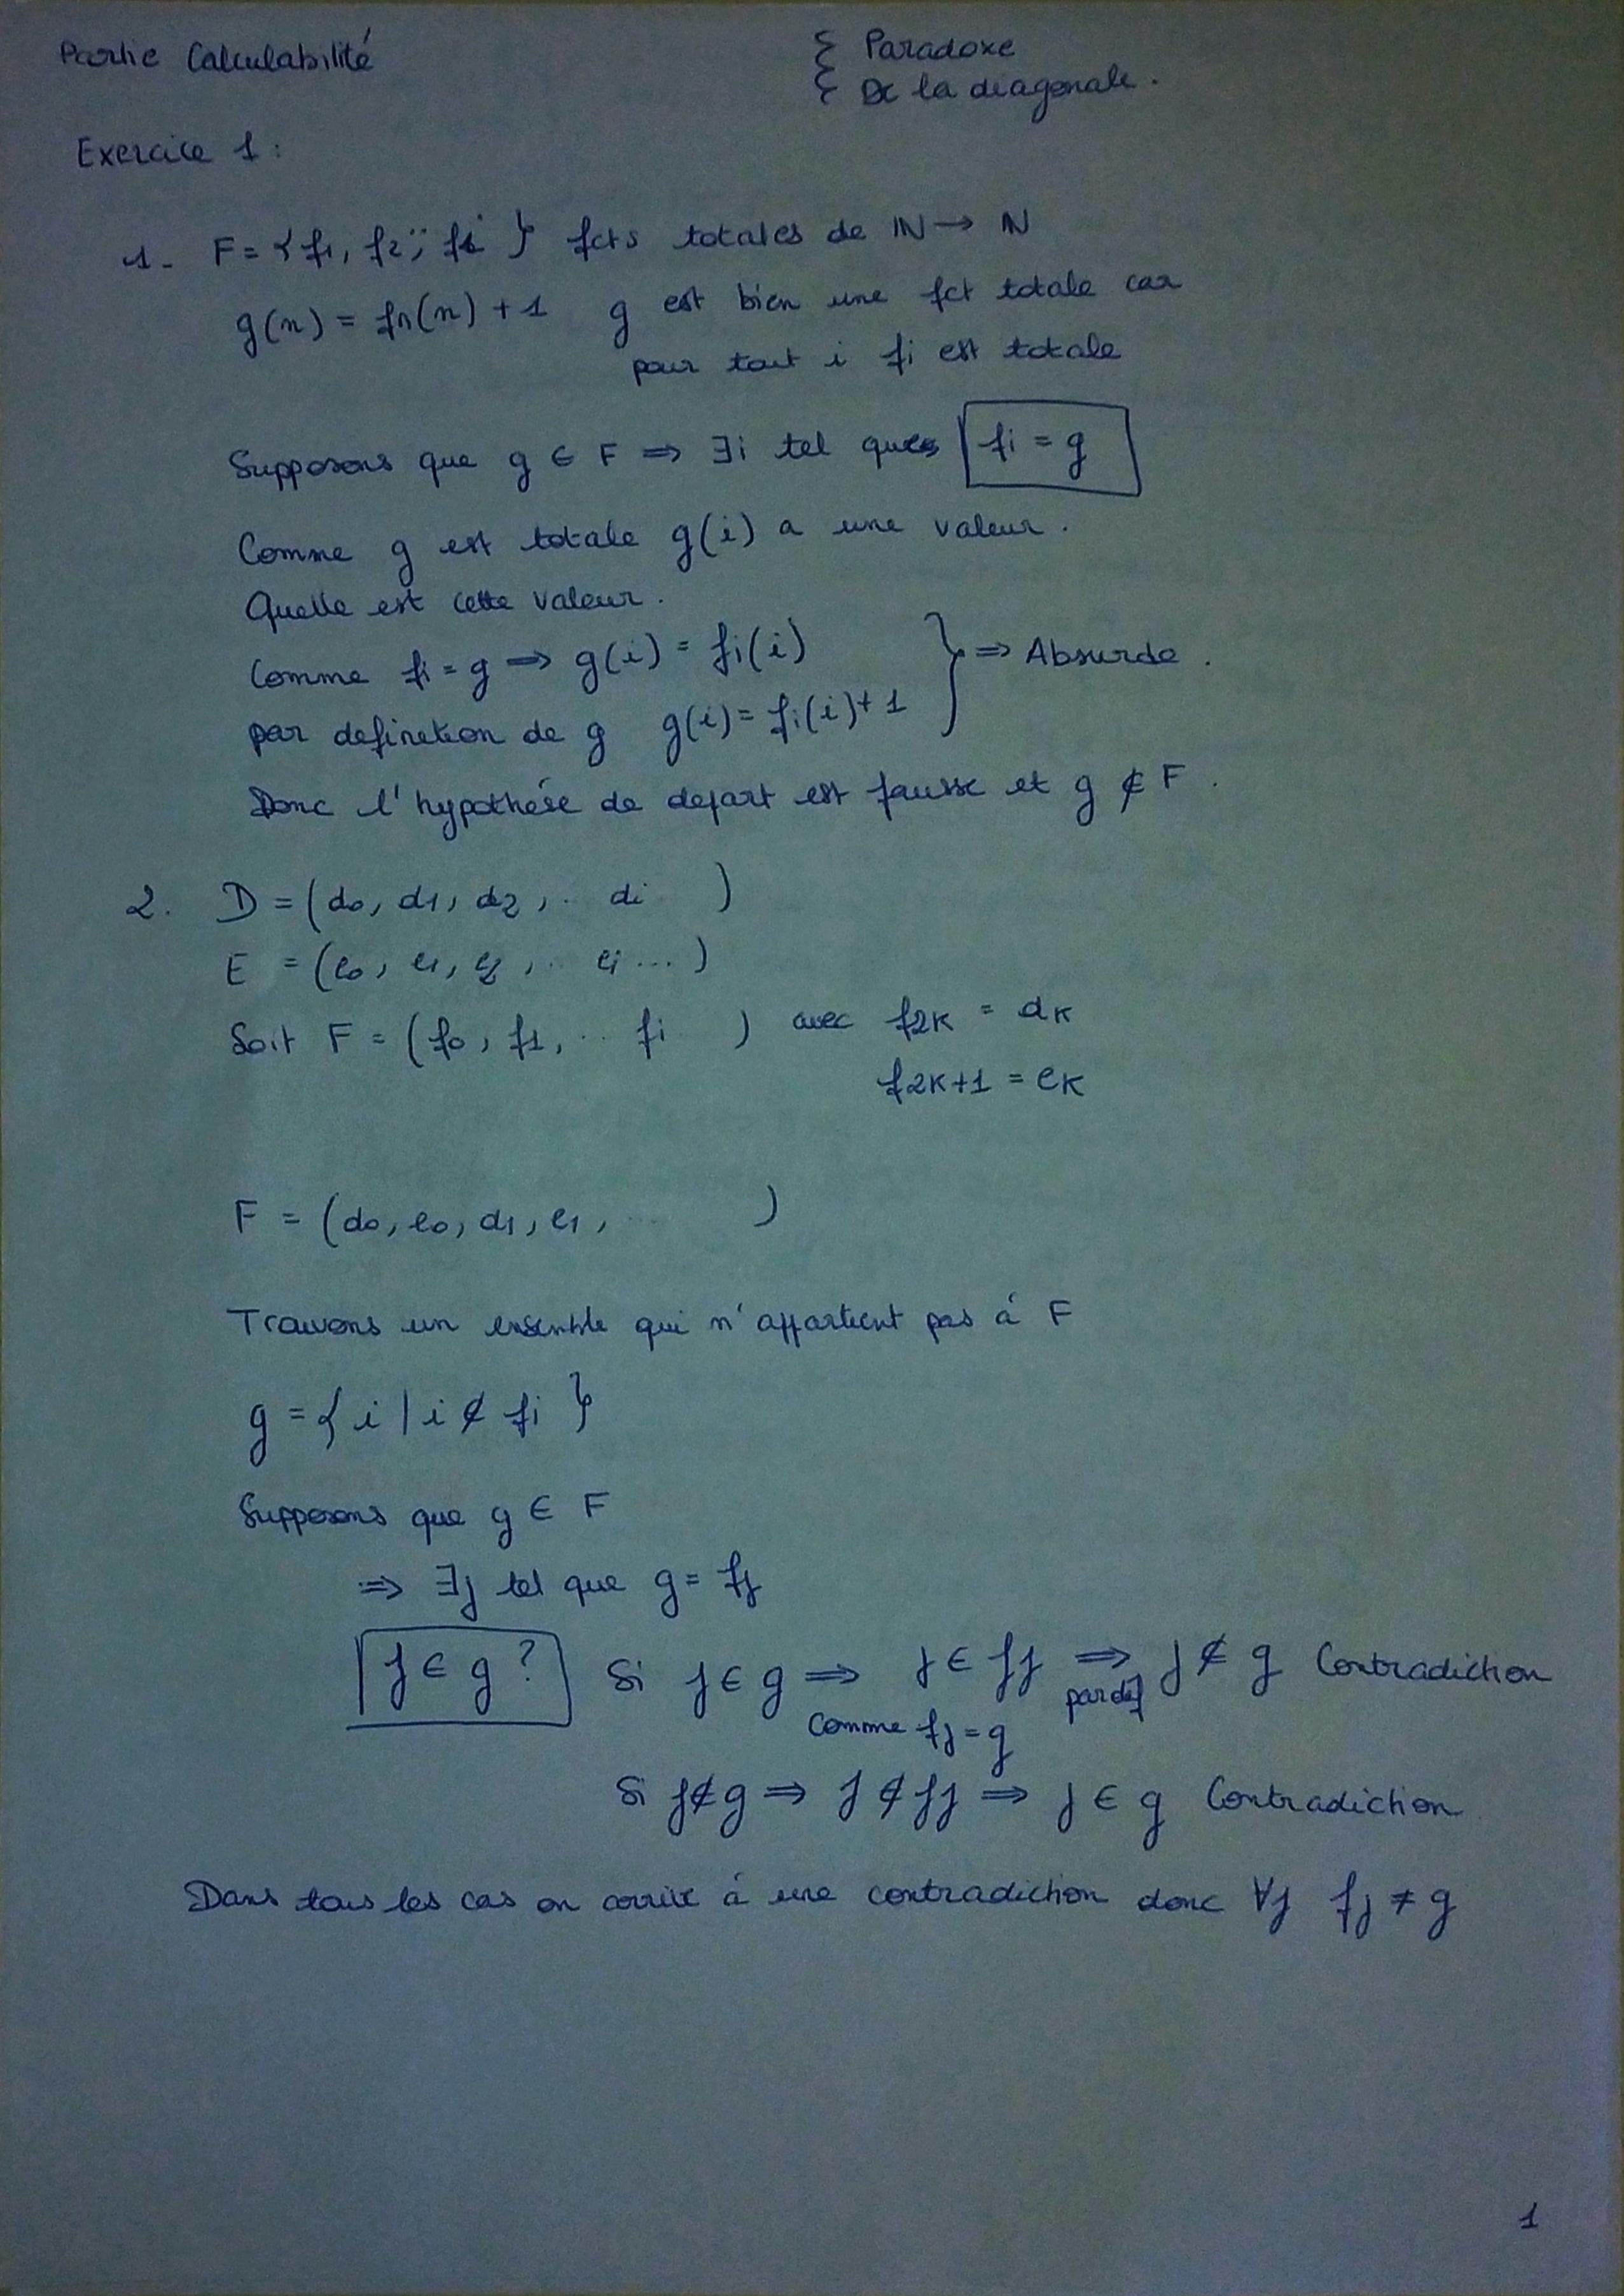 Partie Calculabilité
{ Paradoxe
{ De la diagonale.
Exercice 1:
1- F = { f1, f2, .. fi } fcts totales de ℕ → ℕ
g(n) = fn(n) + 1 g est bien une fct totale car
pour tout i fi est totale
Supposons que g ∈ F ⇒ ∃i tel que fi = g
Comme g est totale g(i) a une valeur.
Quelle est cette valeur.
Comme fi = g ⇒ g(i) = fi(i)
par definition de g g(i) = fi(i) + 1 } ⇒ Absurde.
Donc l'hypothése de depart est fausse et g ∉ F.
2. D = (d0, d1, d2, .. di )
E = (e0, e1, e2, .. ei ... )
Soit F = (f0, f1, .. fi ) avec f2K = dK
f2K+1 = eK
F = (d0, e0, d1, e1, ... )
Trouvons un ensemble qui n'appartient pas á F
g = { i | i ∉ fi }
Supposons que g ∈ F
⇒ ∃j tel que g = fj
j ∈ g ? Si j ∈ g ⇒ j ∈ fj ⇒ j ∉ g Contradiction
comme fj = g par def
Si j ∉ g ⇒ j ∉ fj ⇒ j ∈ g Contradiction
Dans tous les cas on arrive á une contradiction donc ∀j fj ≠ g
1